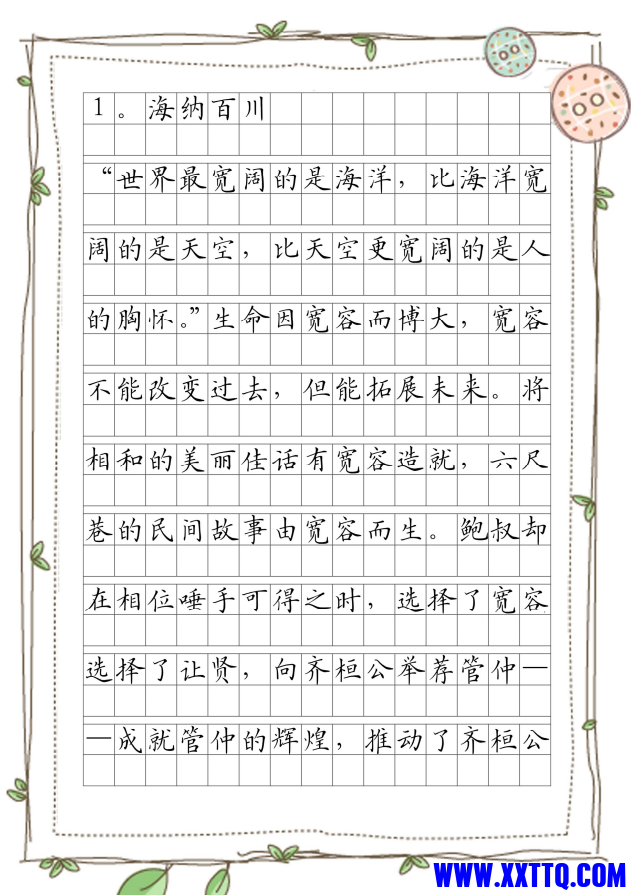 1。海纳百川
“世界最宽阔的是海洋，比海洋宽
阔的是天空，比天空更宽阔的是人
的胸怀。”生命因宽容而博大，宽容
不能改变过去，但能拓展未来。将
相和的美丽佳话有宽容造就，六尺
巷的民间故事由宽容而生。鲍叔却
在相位唾手可得之时，选择了宽容
选择了让贤，向齐桓公举荐管仲—
—成就管仲的辉煌，推动了齐桓公
WWW.XXTTQ.COM